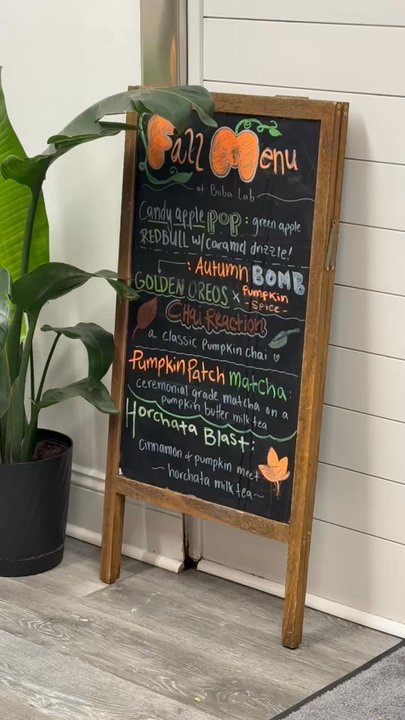 Fall Menu
at Boba Lab
Candy apple POP: green apple
REDBULL w/caramel drizzle!
: Autumn BOMB
GOLDEN OREOS x Pumpkin
- SPICE -
CHai ReactioN
a classic Pumpkin chai
PumpkinPatch Matcha:
ceremonial grade matcha on a
pumpkin butter milk tea
Horchata Blast:
Cinnamon & pumpkin meet
~ horchata milk tea ~